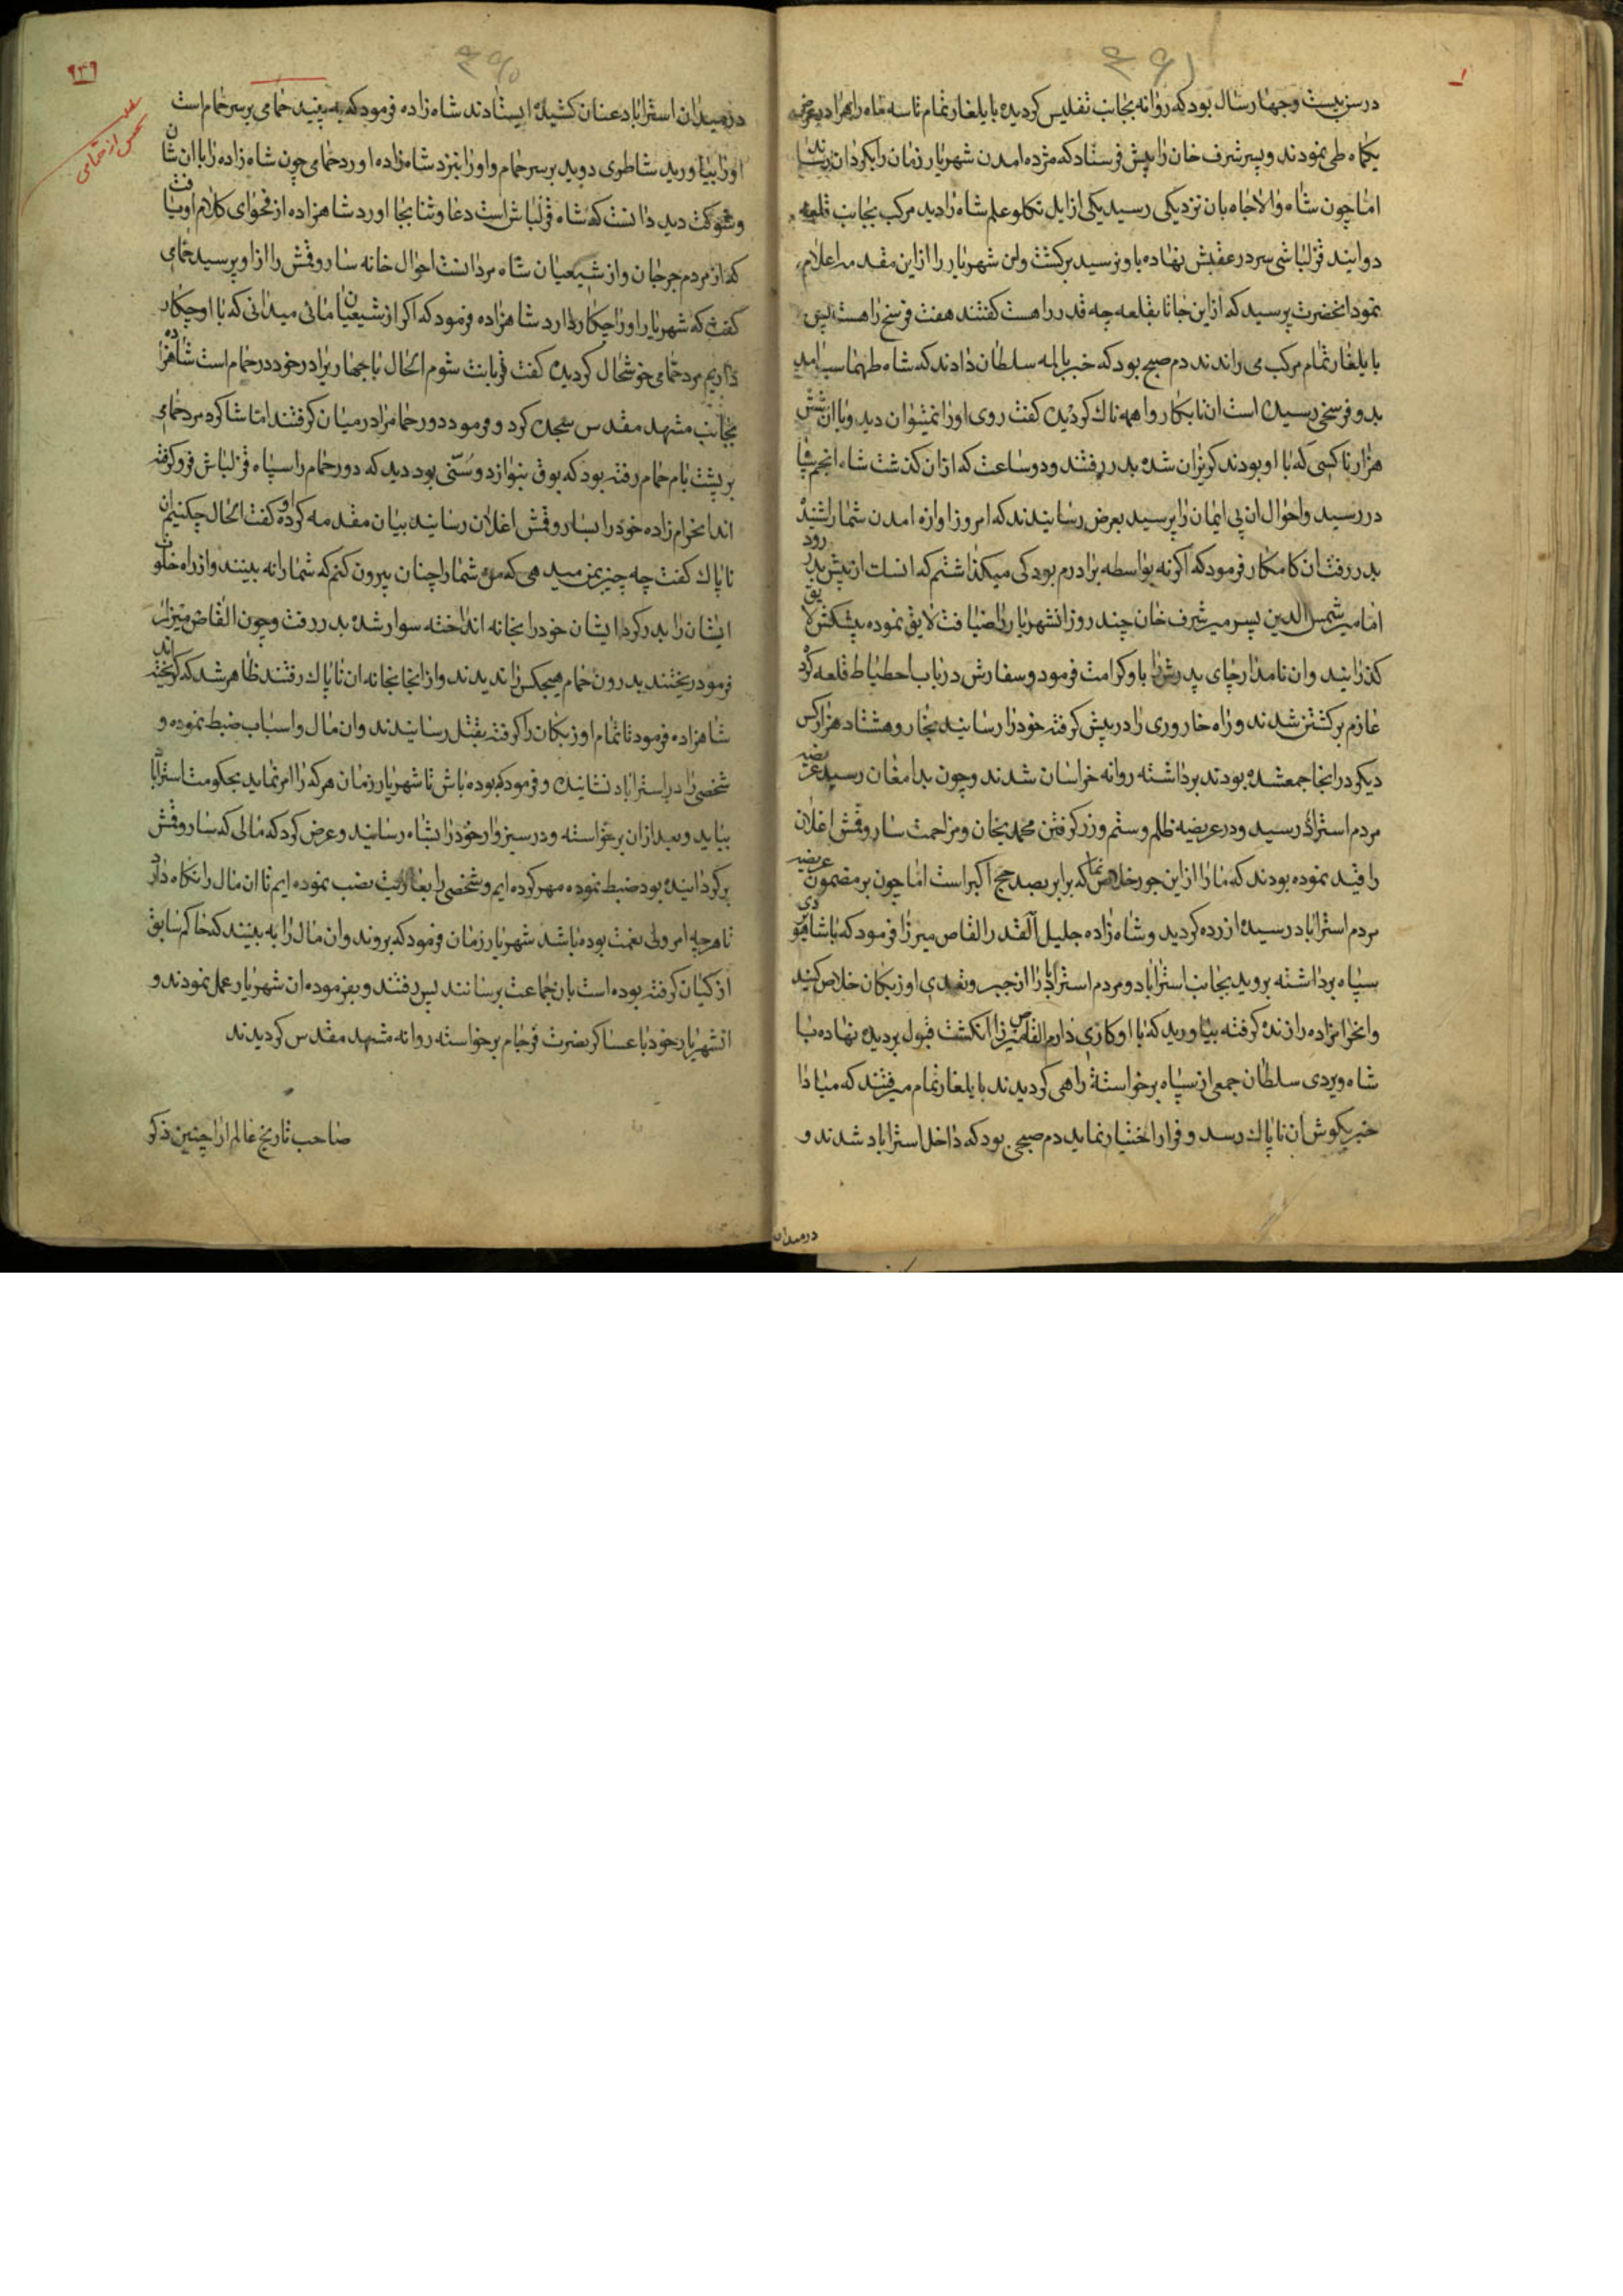 ۴۹۱
در سن بیست و چهار سال بود که روانه بجانب تفلیس کردیده بایلغار تمام تا سه ماه راه را در عرض
یکماه طی نمودند و پسر شرف خان را پیش فرستاد که مژده امدن شهریار زمان را بکردان رساند
اما چون شاه والاجاه بان نزدیکی رسید یکی از ایل تکلو علم شاه را دید مرکب بجانب قلعه
دوانید قزلباشی سر در عقبش نهاده باو نرسید برکشت ولن شهریار را ازاین مقدمه اعلام
نمود انحضرت پرسید که ازاین جا تا بقلعه چه قدر راهست کفتند هفت فرسخ راهست پس
بایلغار تمام مرکب می راندند دم صبح بود که خبر بالمه سلطان دادند که شاه طهماسب امد
بدو فرسخی رسیده است ان نابکار واهمه ناک کردیده کفت روی اورا نمیتوان دید و با ان شش
هزار ناکسی که با او بودند کریزان شده بدر رفتند و دو ساعت که ازان کذشت شاه انجم سپاه
در رسید و احوال ان بی ایمان را پرسید بعرض رسانیدند که امروز اوازه امدن شما را شنیده
بدر رفت ان کامکار فرمود که اکرنه بواسطه برادرم بود کی میکذاشتم که انسک از پیش بدر رود
اما میر شمس الدین پسر میر شرف خان چند روز انشهریار را ضیافت لایق نموده پیشکش لایق
کذرانید وان نامدار جای پدرش را باو کرامت فرمود و سفارش در باب احطیاط قلعه کرد
عازم برکشتن شدند و راه خار وری را در پیش کرفته خودرا رسانید بخار و هشتاد هزار کس
دیکر در انجا جمعشده بودند برداشته روانه خراسان شدند و چون بدامغان رسید عریضه
مردم استراد رسید و در عریضه ظلم و ستم و زر کرفتن محمد یخان و مزاحمت ساروقش اغلان
را قید نموده بودند که مارا ازاین جور خلاص نما که برابر بصد حج اکبر است اما چون بر مضمون عریضه
مردم استراباد رسیده ازرده کردید و شاه زاده جلیل القدر القاص میرزا فرمود که با شاهویردی
سپاه برداشته بروید بجانب استراباد و مردم استراباد را از جبر و تعدی اوزبکان خلاص کنید
وانحرامزاده را زنده کرفته بیاورید که با او کاری دارم القاص میرزا انکشت قبول بر دیده نهاده با
شاه ویردی سلطان جمعی از سپاه برخواسته راهی کردیدند بایلغار تمام میرفتند که مبادا
خبر بکوش ان ناپاک رسد و فرار اختیار نماید دم صبحی بود که داخل استراباد شدند و
در میدان
۹۳۹
در میدان استراباد عنان کشیده ایستادند شاه زاده فرمود که به بینید حمامی بر سر حمام است
اورا بیاورید شاطری دوید بر سر حمام و اورا بنزد شاه زاده اورد حمامی چون شاه زاده را با ان شان
و شوکت دید دانست که شاه قزلباش است دعا و ثنا بجا اورد شاهزاده از فحوای کلام او یافت
که از مردم جرجان و از شیعیان شاه مردانست احوال خانه ساروقش را ازاو پرسید حمامی
کفت که شهریارا اورا چکار دارد شاهزاده فرمود که اکر از شیعیان مائی میدانی که با او چکار
داریم مرد حمامی خوشحال کردیده کفت قربانت شوم الحال با چهار برادر خود در حمام است شاهزاده
بجانب مشهد مقدس سجده کرد و فرمود دور حمام را در میان کرفتند اما شاکرد مرد حمامی
بر پشت بام حمام رفته بود که بوق بنوازد و سنی بود دید که دور حمام را سپاه قزلباش فرو کرفته
اند انحرام زاده خود را بساروقش اغلان رسانید بیان مقدمه کرد او کفت الحال چکنیم ان
ناپاک کفت چه چیز بمن میدهی که من شمارا چنان بیرون کنم که شمارا نه بینند و از راه خلوت
ایشان را بدر کرد ایشان خودرا بخانه انداخته سوار شده بدر رفت و چون القاص میرزا
فرمود ریختند بدرون حمام هیچکس را ندیدند و از انجا بخانه ان ناپاک رفتند ظاهر شد که کریخته اند
شاهزاده فرمود تا تمام اوزبکان را کرفته بقتل رسانیدند وان مال و اسباب ضبط نموده و
شخصی را در استراباد نشانیده و فرمود که بوده باش تا شهریار زمان هر که را امر نماید بحکومت استراباد
بیاید و بعد ازان برخواسته و در سبزوار خودرا بشاه رسانید و عرض کرد که مالی که ساروقش
برکردانیده بود ضبط نموده مهر کرده ایم و شخصی را بعاریت نصب نموده ایم تا ان مال را نکاه دارد
تا هر چه امر ولی نعمت بوده باشد شهریار زمان فرمود که بروند وان مال را به بینند که حاکم سابق
از کیان کرفته بوده است بان جماعت برسانند پس رفتند و بفرموده ان شهریار عمل نمودند و
انشهریار خود با عساکر نصرت فرجام برخواسته روانه مشهد مقدس کردیدند
صاحب تاریخ عالم ارا چنین ذکر